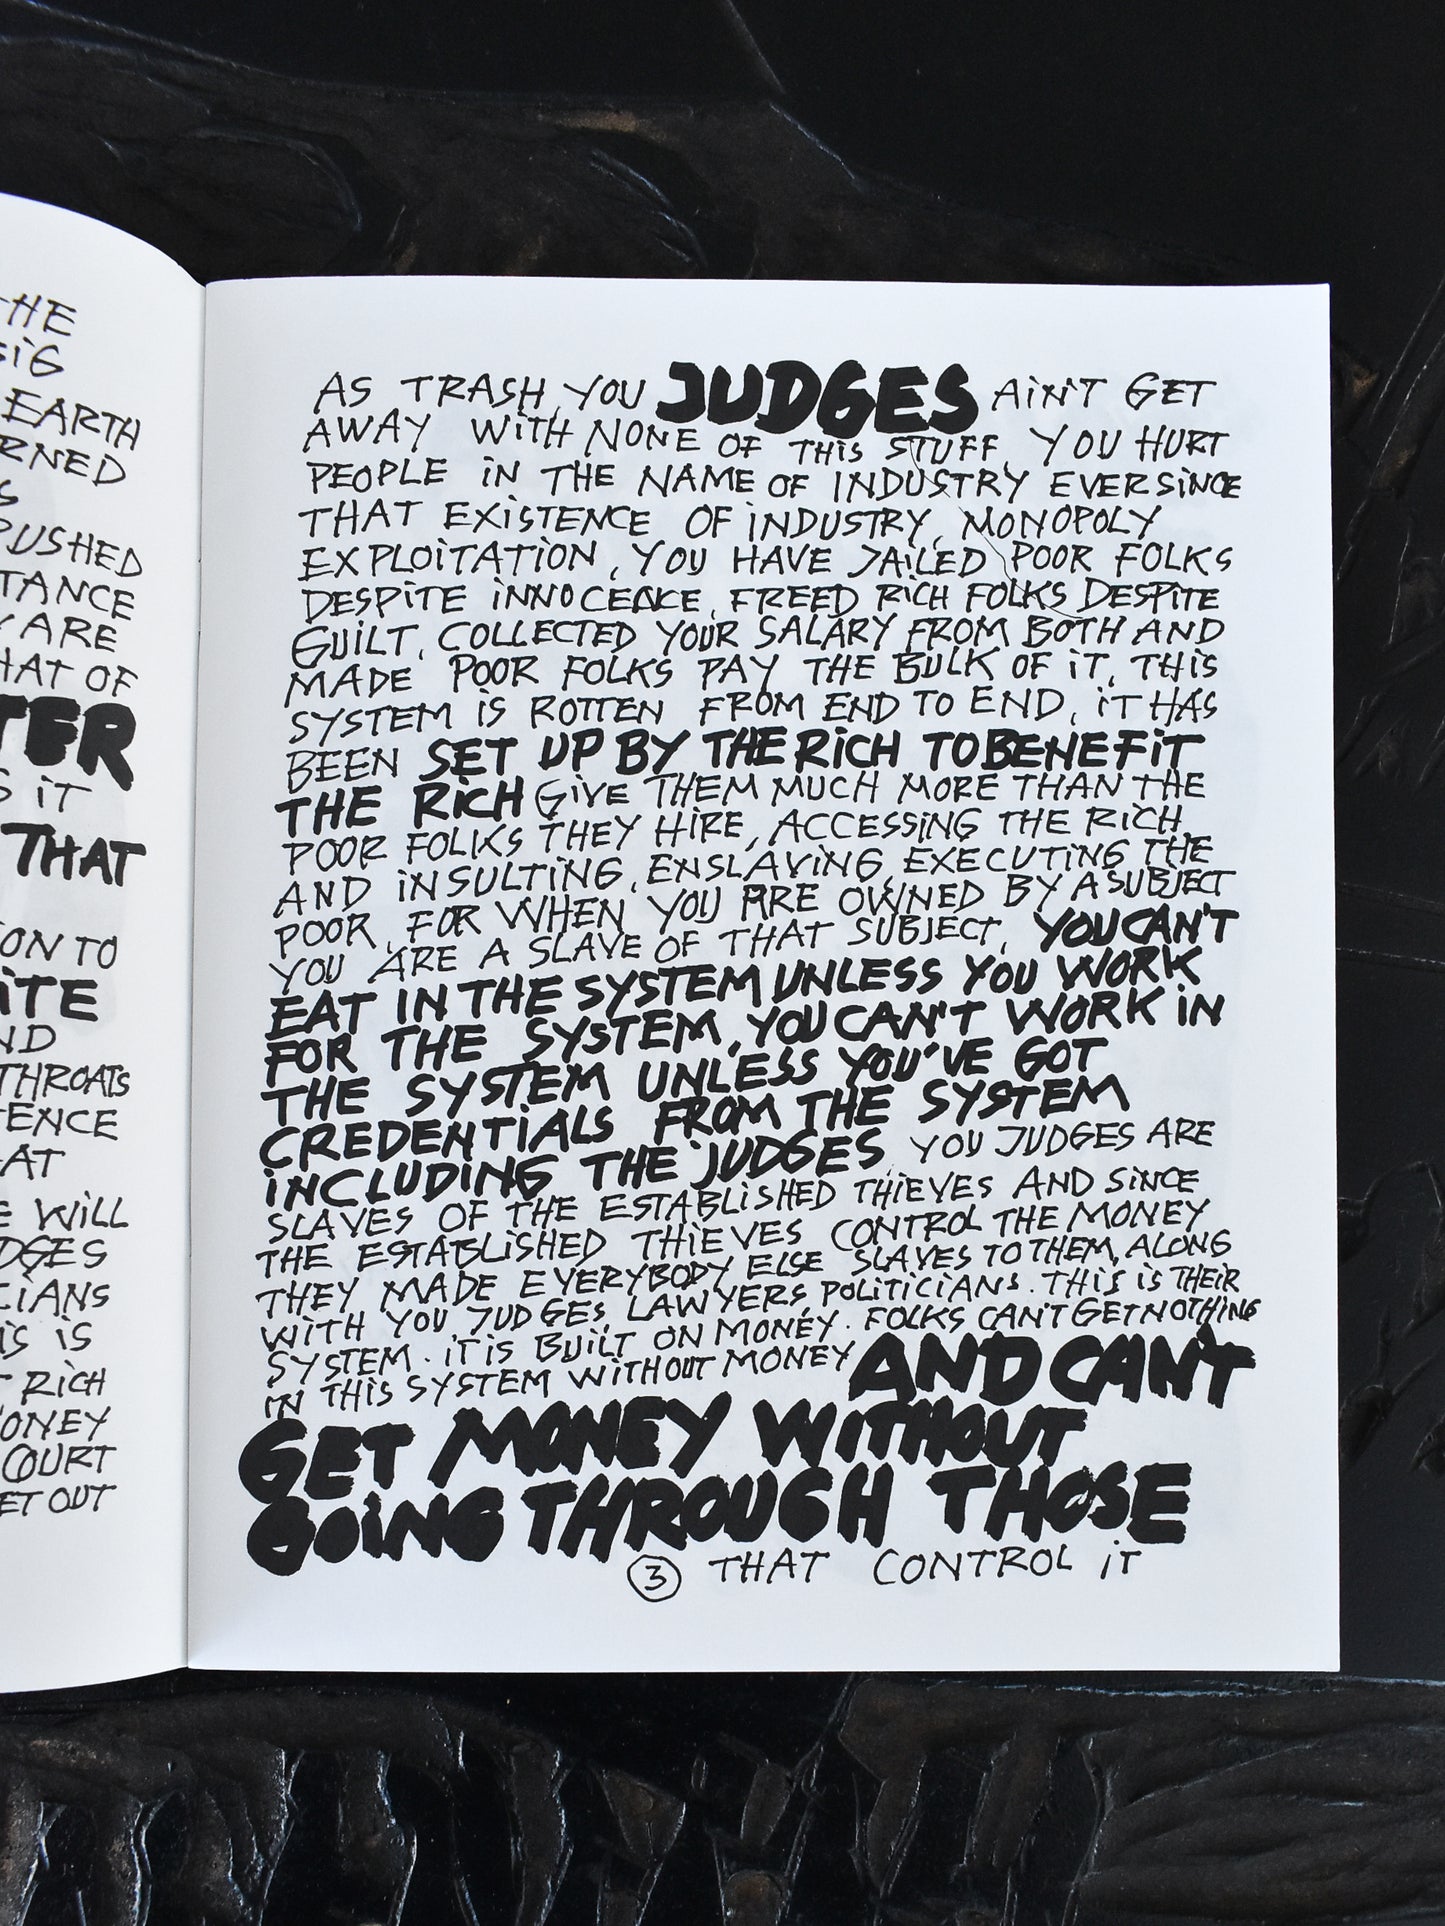 HE
SiG
EARTH
RNED
S
PUSHED
TANCE
Y ARE
HAT OF
TER
S iT
THAT
ON TO
iTE
ND
THROATS
TENCE
AT
E WiLL
DGES
CiANS
iS iS
T RiCH
ONEY
COURT
ET OUT
AS TRASH, YOU JUDGES AiN'T GET
AWAY WiTH NONE OF THiS STUFF, YOU HURT
PEOPLE iN THE NAME OF INDUSTRY EVER SiNCE
THAT EXiSTENCE OF iNDUSTRY, MONOPOLY
EXPLOiTATiON, YOU HAVE JAiLED POOR FOLKS
DESPiTE iNNOCENCE, FREED RiCH FOLKS DESPiTE
GUiLT, COLLECTED YOUR SALARY FROM BOTH AND
MADE POOR FOLKS PAY THE BULK OF iT, THiS
SYSTEM iS ROTTEN FROM END TO END, iT HAS
BEEN SET UP BY THE RiCH TO BENEFiT
THE RiCH GiVE THEM MUCH MORE THAN THE
POOR FOLKS THEY HiRE, ACCESSiNG THE RiCH
AND iNSULTiNG, ENSLAViNG, EXECUTiNG THE
POOR, FOR WHEN YOU ARE OWNED BY A SUBJECT
YOU ARE A SLAVE OF THAT SUBJECT, YOU CAN'T
EAT IN THE SYSTEM UNLESS YOU WORK
FOR THE SYSTEM, YOU CAN'T WORK iN
THE SYSTEM UNLESS YOU'VE GOT
CREDENTiALS FROM THE SYSTEM
iNCLUDiNG THE JUDGES YOU JUDGES ARE
SLAVES OF THE ESTABLiSHED THiEVES AND SiNCE
THE ESTABLiSHED THiEVES CONTROL THE MONEY
THEY MADE EVERYBODY ELSE SLAVES TO THEM, ALONG
WiTH YOU JUDGES, LAWYERS, POLiTiCiANS. THiS iS THEiR
SYSTEM. iT iS BUiLT ON MONEY. FOLKS CAN'T GET NOTHiNG
iN THiS SYSTEM WiTHOUT MONEY AND CAN'T
GET MONEY WiTHOUT
GOiNG THROUGH THOSE
3 THAT CONTROL iT